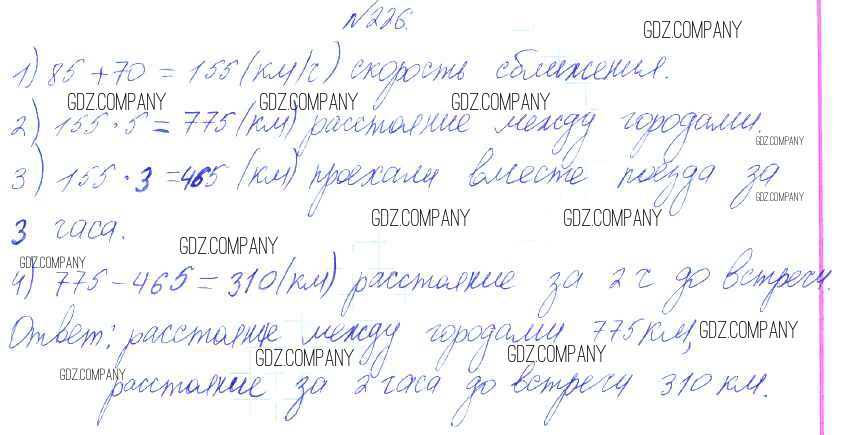 №226.
GDZ.COMPANY
1) 85+70 = 155 (км/ч) скорость сближения.
GDZ.COMPANY GDZ.COMPANY GDZ.COMPANY
2) 155·5 = 775 (км) расстояние между городами.
GDZ.COMPANY
3) 155·3 =465 (км) проехали вместе поезда за
GDZ.COMPANY
3 часа.
GDZ.COMPANY GDZ.COMPANY GDZ.COMPANY
GDZ.COMPANY
4) 775-465 = 310 (км) расстояние за 2 ч до встречи.
Ответ: расстояние между городами 775 км,
GDZ.COMPANY
GDZ.COMPANY GDZ.COMPANY
GDZ.COMPANY
расстояние за 2 часа до встречи 310 км.